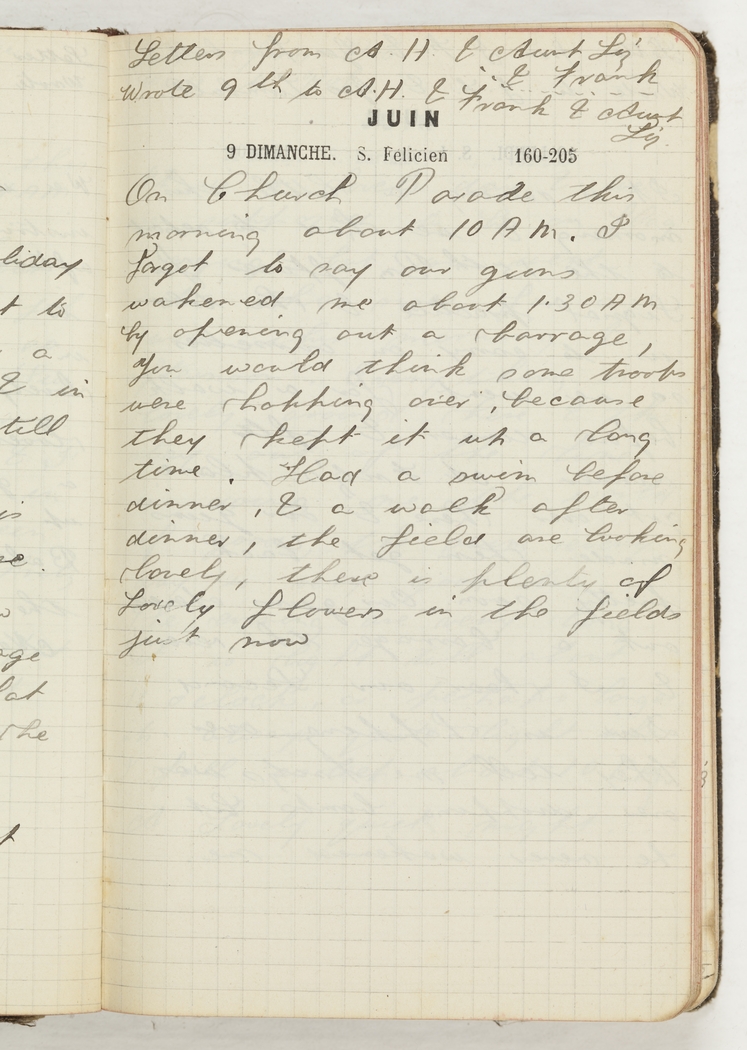 Letters from A. H. & Aunt Liz
& Frank
Wrote 9th to A.H. & Frank & Aunt
Liz.
JUIN
9 DIMANCHE. S. Felicien 160-205
On Church Parade this
morning about 10 AM. I
forget to say our guns
wakened me about 1.30 AM
by opening out a barrage,
you would think some troops
were hopping over, because
they kept it up a long
time. Had a swim before
dinner, & a walk after
dinner, the field are looking
lovely, there is plenty of
lovely flowers in the fields
just now
liday
t to
a
& in
till
is
age
lat
the